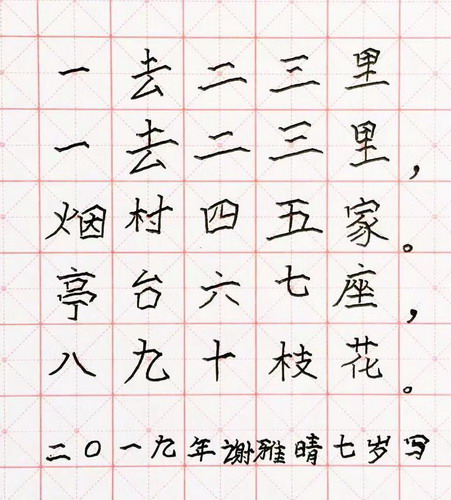 一去二三里
一去二三里，
烟村四五家。
亭台六七座，
八九十枝花。
二〇一九年谢雅晴七岁写